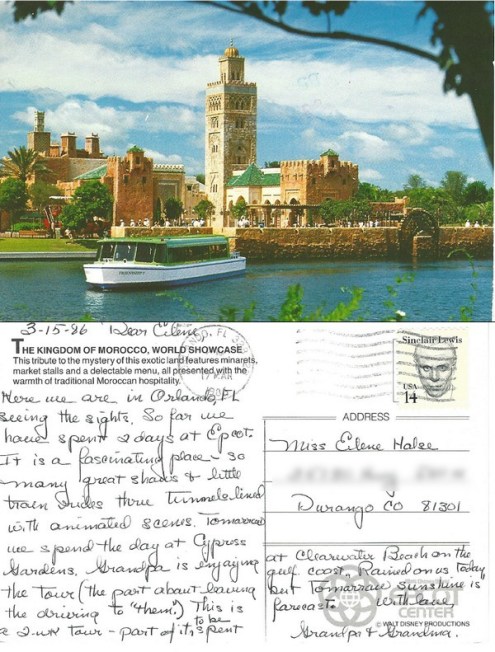 3-15-86 Dear Eilene,
THE KINGDOM OF MOROCCO, WORLD SHOWCASE
This tribute to the mystery of this exotic land features minarets,
market stalls and a delectable menu, all presented with the
warmth of traditional Moroccan hospitality.
Here we are in Orlando, FL
seeing the sights. So far we
have spent 2 days at Epcot.
It is a fascinating place - so
many great shows & little
train rides thru tunnels lined
with animated scenes. Tomorrow
we spend the day at Cypress
Gardens. Grandpa is enjoying
the tour (the part about leaving
the driving to "them".) This is
a 2-wk tour - part of it, to be spent
at Clearwater Beach on the
gulf coast. Rained on us today
but Tomorrow sunshine is
forecast. With love,
Grandpa & Grandma.
FL
17 MAR
Sinclair Lewis
USA
14
ADDRESS
Miss Eilene Halse
Durango CO 81301
EPCOT
CENTER
© WALT DISNEY PRODUCTIONS